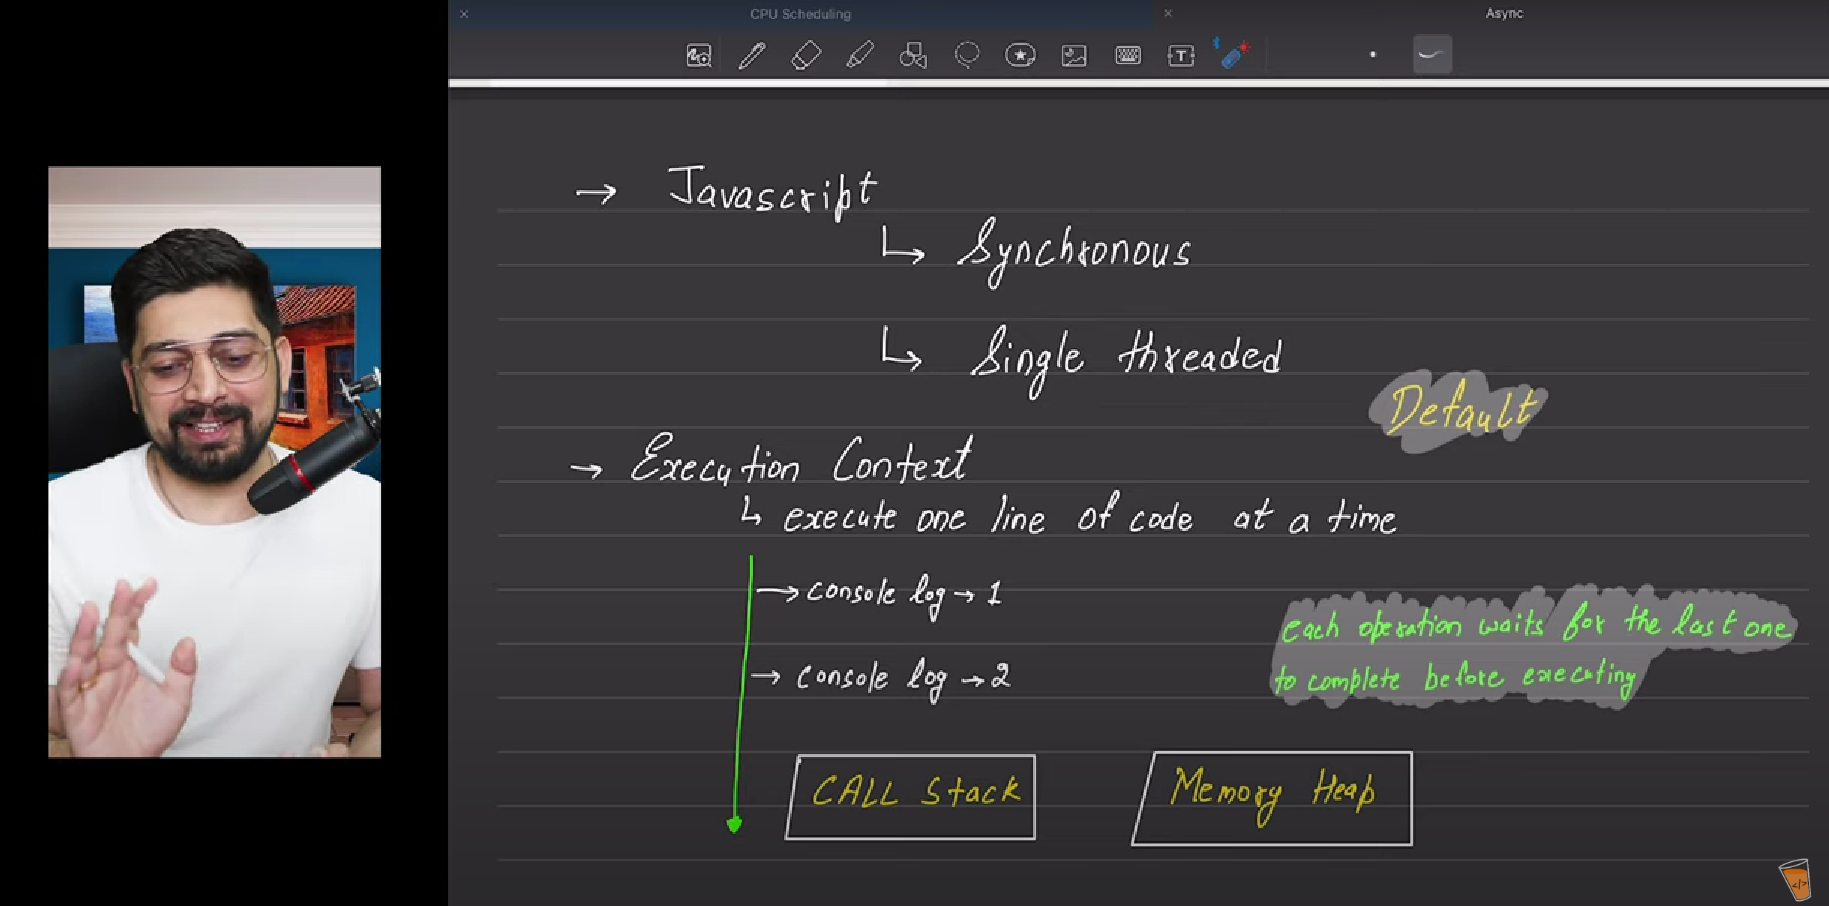 CPU Scheduling
Async
→ Javascript
↳ Synchronous
↳ Single threaded
Default
→ Execution Context
↳ execute one line of code at a time
→ console log → 1
each operation waits for the last one
to complete before executing
→ console log → 2
CALL Stack
Memory Heap